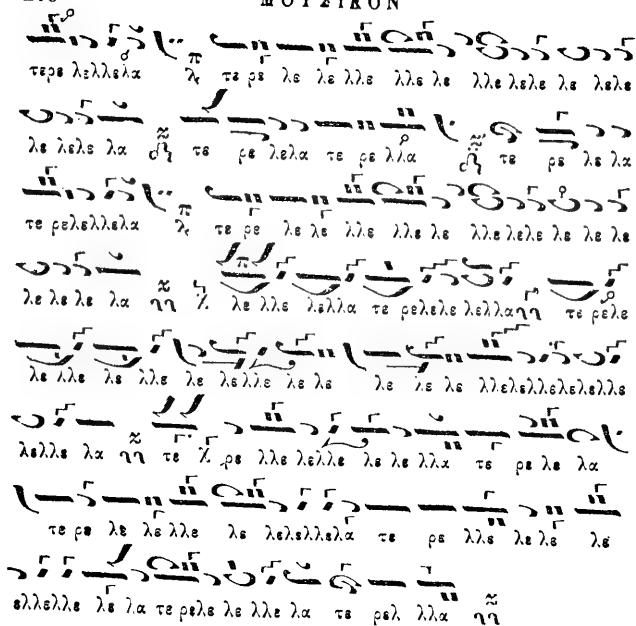 ΜΟΥΣΙΚΟΝ
τερε λελλελα λε τε ρε λε λε λλε λλε λε λλε λελε λε λελε
λε λελε λα τε ρε λελα τε ρε λλα τε ρε λε λα
τε ρελελλελα λε τε ρε λε λε λλε λλε λε λλε λελε λε λε λε
λε λε λε λα λε λλε λελλα τε ρελελε λελλα τε ρελε
λε λλε λε λλε λε λελλε λε λε λε λε λε λλελελλελελελλε
λελλε λα τε ρε λλε λελλε λε λε λλα τε ρε λε λα
τε ρε λε λε λλε λε λελελλελα τε ρε λλε λε λε λε
ελλελλε λε λα τε ρελε λε λλε λα τε ρελ λλα